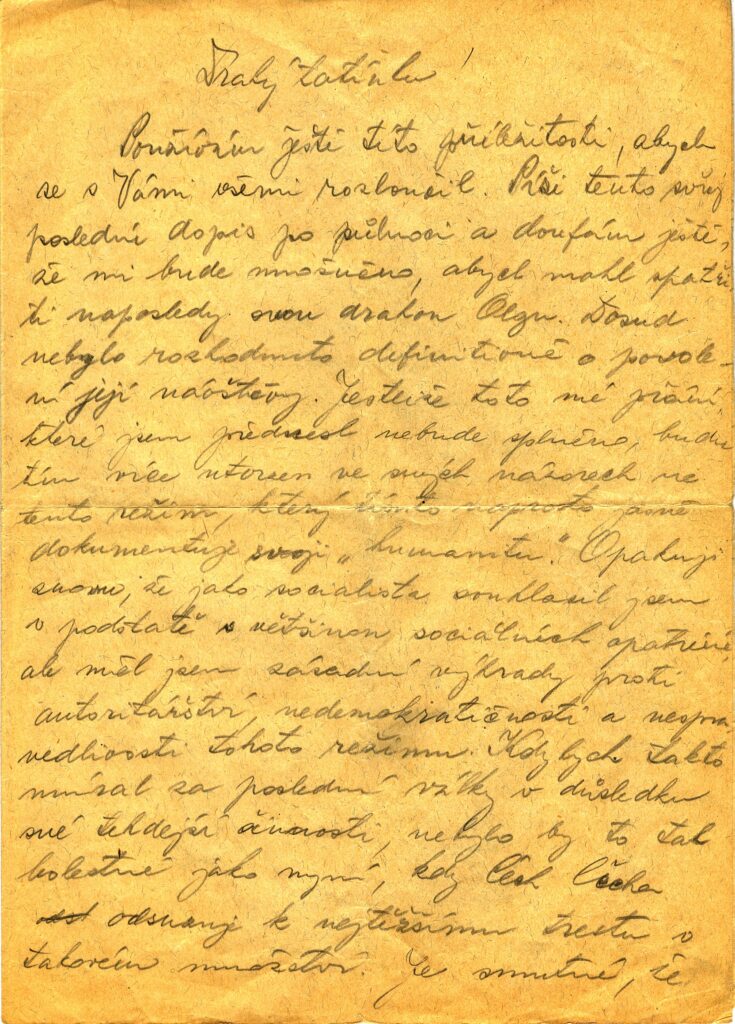 Drahý tatínku!
Používám ještě této příležitosti, abych
se s Vámi všemi rozloučil. Píši tento svůj
poslední dopis po půlnoci a doufám ještě,
že mi bude umožněno, abych mohl spatři-
ti naposledy svou drahou Olgu. Dosud
nebylo rozhodnuto definitivně o povole-
ní její návštěvy. Jestliže toto mé přání,
které jsem přednesl nebude splněno, budu
tím více utvrzen ve svých názorech na
tento režim, který tímto naprosto jasně
dokumentuje svoji „humanitu." Opakuji
znovu, že jako socialista souhlasil jsem
v podstatě s většinou sociálních opatření,
ale měl jsem zásadní výhrady proti
autoritářství, nedemokratičnosti a nespra-
vedlivosti tohoto režimu. Kdybych takto
umíral za poslední války v důsledku
své tehdejší činnosti, nebylo by to tak
bolestné jako nyní, kdy Čech Čecha
odsuzuje k nejtěžšímu trestu v
takovém množství. Je smutné, že